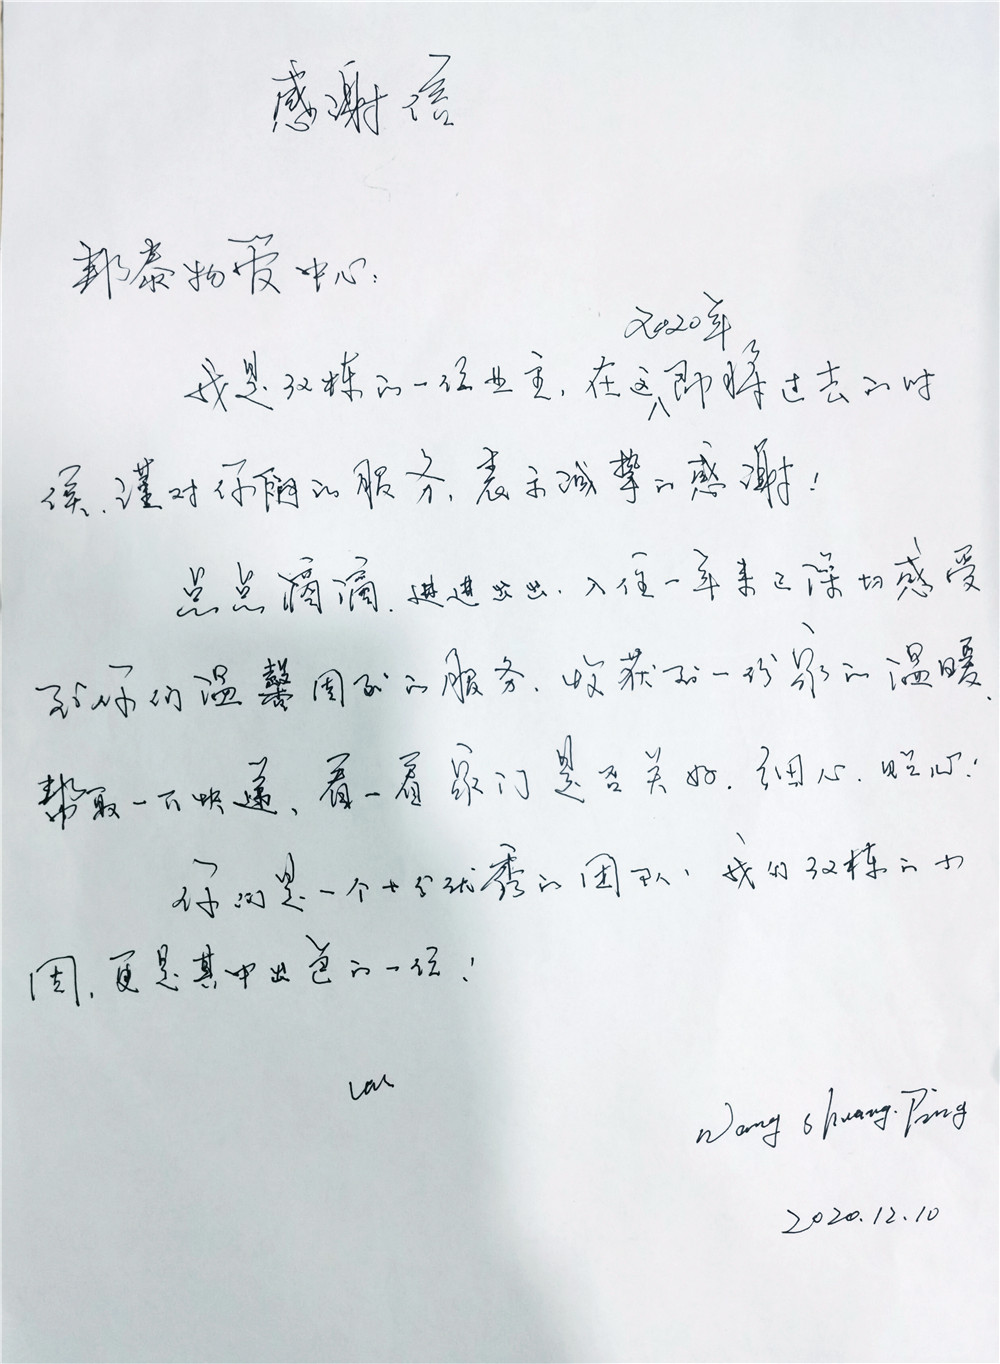 感谢信
邦泰物爱中心:
2020年
我是双栋的一位业主,在这即将过去的时
候,谨对你们的服务,表示诚挚的感谢!
点点滴滴,进进出出,入住一年来已深切感受
到你们温馨周到的服务,收获到一份家的温暖,
帮取一下快递、看一看家门是否关好,细心、贴心!
你们是一个十分优秀的团队,我们双栋的小
周,更是其中出色的一位!
Wang Shuang.Ping
2020.12.10